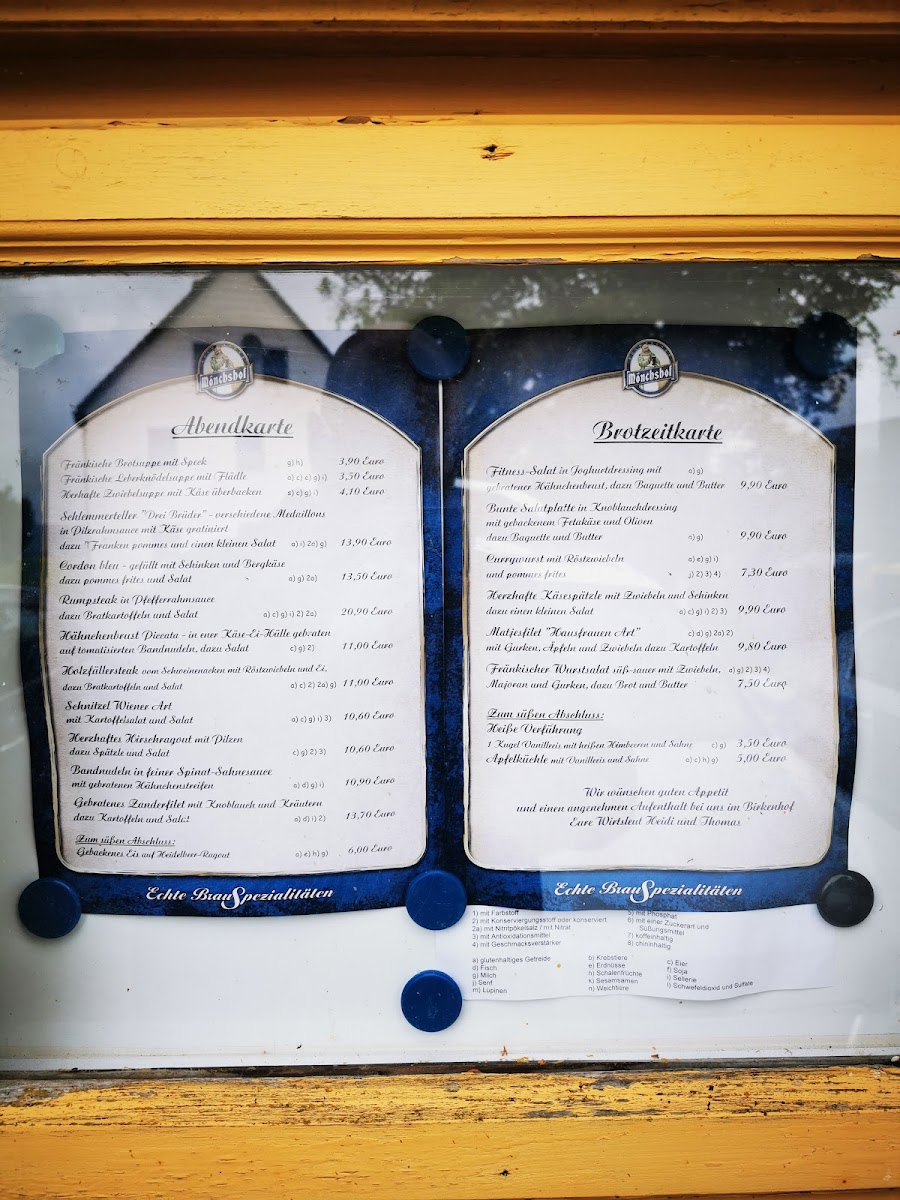 Mönchshof
Abendkarte
Fränkische Brotsuppe mit Speck g) h) 3,90 Euro
Fränkische Leberknödelsuppe mit Flädle a) c) g) i) 3,50 Euro
Herhafte Zwiebelsuppe mit Käse überbacken g) i) 4,10 Euro
Schlemmerteller "Drei Brüder" - verschiedene Medaillons
in Pilzrahmsauce mit Käse gratiniert
dazu "Franken pommes und einen kleinen Salat a) i) 2a) g) 13,90 Euro
Cordon bleu - gefüllt mit Schinken und Bergkäse
dazu pommes frites und Salat a) g) 2a) 13,50 Euro
Rumpsteak in Pfefferrahmsauce
dazu Bratkartoffeln und Salat a) c) g) i) 2) 2a) 20,90 Euro
Hähnchenbrust Piccata - in ener Käse-Ei-Hülle gebraten
auf tomatisierten Bandnudeln, dazu Salat c) g) 2) 11,00 Euro
Holzfällersteak vom Schweinenacken mit Röstzwiebeln und Ei,
dazu Bratkartoffeln und Salat a) c) 2) 2a) g) 11,00 Euro
Schnitzel Wiener Art
mit Kartoffelsalat und Salat a) c) g) i) 3) 10,60 Euro
Herzhaftes Hirschragout mit Pilzen
dazu Spätzle und Salat c) g) 2) 3) 10,60 Euro
Bandnudeln in feiner Spinat-Sahnesauce
mit gebratenen Hähnchenstreifen a) d) g) i) 10,90 Euro
Gebratenes Zanderfilet mit Knoblauch und Kräutern
dazu Kartoffeln und Salat a) d) i) 2) 13,70 Euro
Zum süßen Abschluss:
Gebackenes Eis auf Heidelbeer-Ragout a) e) h) g) 6,00 Euro
Echte BrauSpezialitäten
Mönchshof
Brotzeitkarte
Fitness-Salat in Joghurtdressing mit a) g)
gebratener Hähnchenbrust, dazu Baguette und Butter 9,90 Euro
Bunte Salatplatte in Knoblauchdressing
mit gebackenem Fetakäse und Oliven
dazu Baguette und Butter a) g) 9,90 Euro
Currywurst mit Röstzwiebeln a) e) g) i)
und pommes frites j) 2) 3) 4) 7,30 Euro
Herzhafte Käsespätzle mit Zwiebeln und Schinken
dazu einen kleinen Salat a) c) g) i) 2) 3) 9,90 Euro
Matjesfilet "Hausfrauen Art" c) d) g) 2a) 2)
mit Gurken, Äpfeln und Zwiebeln dazu Kartoffeln 9,80 Euro
Fränkischer Wurstsalat süß-sauer mit Zwiebeln, a) g) 2) 3) 4)
Majoran und Gurken, dazu Brot und Butter 7,50 Euro
Zum süßen Abschluss:
Heiße Verführung
1 Kugel Vanilleeis mit heißen Himbeeren und Sahne c) g) 3,50 Euro
Apfelküchle mit Vanilleeis und Sahne a) c) h) g) 5,00 Euro
Wir wünschen guten Appetit
und einen angenehmen Aufenthalt bei uns im Birkenhof
Eure Wirtsleut Heidi und Thomas
Echte BrauSpezialitäten
1) mit Farbstoff
2) mit Konservierungsstoff oder konserviert
2a) mit Nitritpökelsalz / mit Nitrat
3) mit Antioxidationsmittel
4) mit Geschmacksverstärker
5) mit Phosphat
6) mit einer Zuckerart und
Süßungsmittel
7) koffeinhaltig
8) chininhaltig
a) glutenhaltiges Getreide b) Krebstiere c) Eier
d) Fisch e) Erdnüsse f) Soja
g) Milch h) Schalenfrüchte i) Sellerie
j) Senf k) Sesamsamen l) Schwefeldioxid und Sulfate
m) Lupinen n) Weichtiere